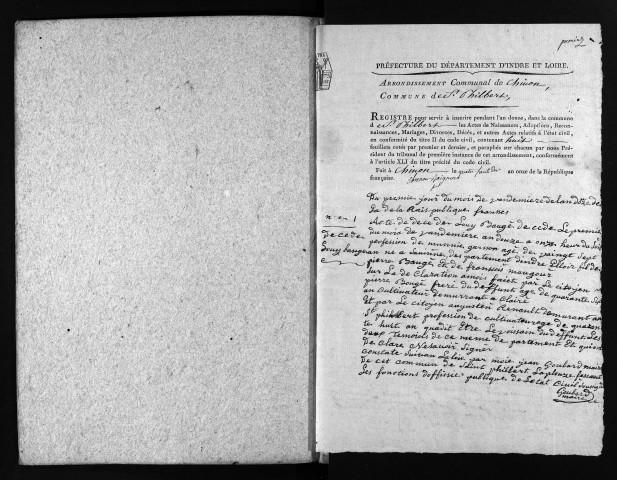 premier
PRÉFECTURE DU DÉPARTEMENT D'INDRE ET LOIRE.
ARRONDISSEMENT Communal de Chinon,
COMMUNE de St Philbert,
REGISTRE pour servir à inscrire pendant l'an douze, dans la commune
d St Philbert les Actes de Naissances, Adoptions, Recon-
naissances, Mariages, Divorces, Décès, et autres Actes relatifs à l'état civil,
en conformité du titre II du code civil, contenant huit
feuillets cotés par premier et dernier, et paraphés sur chacun par nous Pré-
sident du tribunal de première instance de cet arrondissement, conformément
à l'article XLI du titre précité du code civil.
Fait à Chinon le quatre an onze de la République
française.
Du premier jour du mois de vandemiere de lan douze de
La de la Raispublique franses
n 1
Acte de dece de Louy Baugé de cede Le premie
du mois de vandemiere an douze a onze heur du
de cede
profesion de munnie garson age de vaingt dept
Louy bauge
an ne a Savinne, departement dindre Elloir fis de
pierre Baugé Et de fransuis maugour
Sur La de Clarazion amois faict par Le citoyen
pierre Baugé frere du deffunt age de quarante
an Cultivateur demurrant a Clairé
Et par Le citoyen augustin Renault demurant a
St philbert profesion de cultivatour age de quaran
te huit an quadit Etre Le voisain du deffunt Les
deux Temoiels de ce meme de partement Et qui
De Clare Ne savoir Signer
Constate suivan La loi par moie jean Goubard maire
De cet commun de Saint philbert Lapleuze faisant
Les fonctions dofficie publique de Letat Civil
Goubard
maire